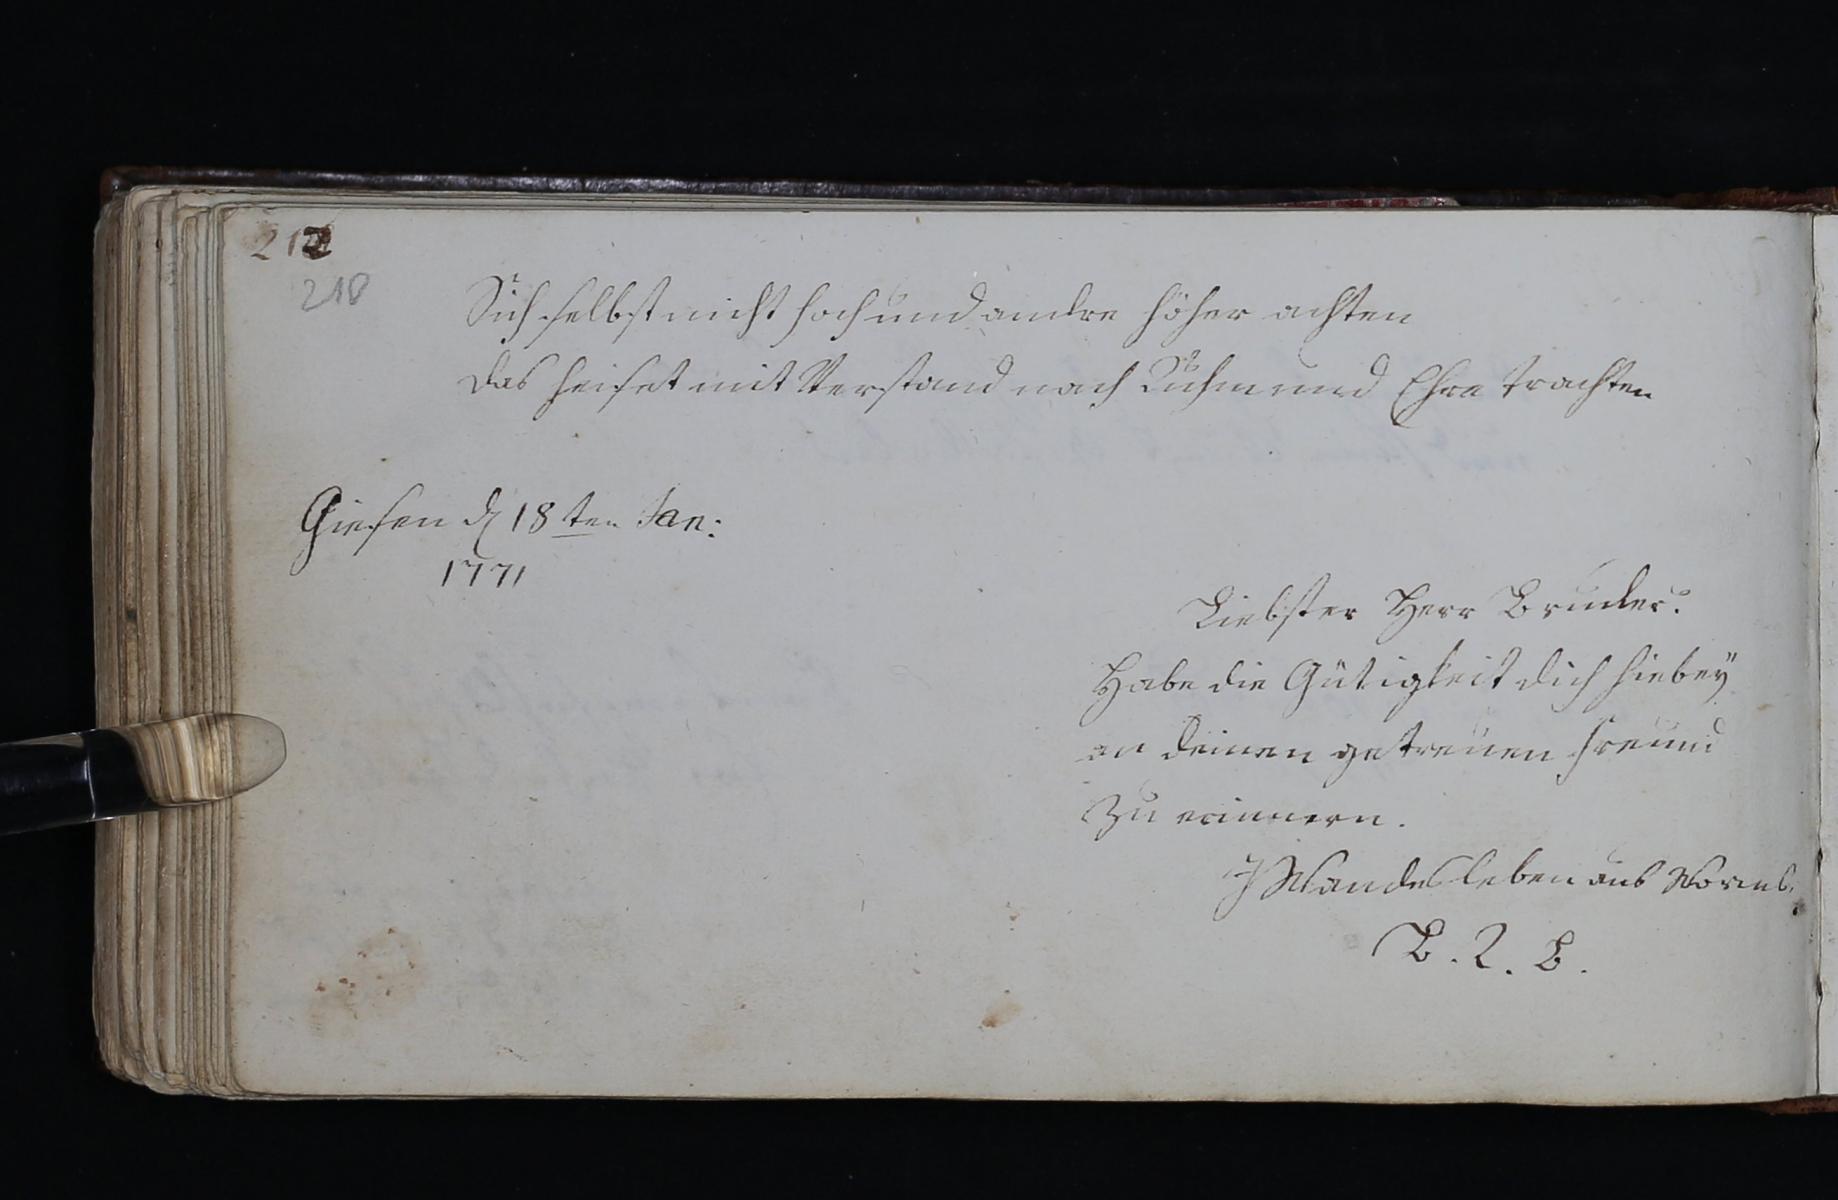 212
210
Sich selbst nicht hoch und andre höher achten
das heiset mit Verstand nach Ruhm und Ehre trachten
Giesen d 18ten Jan:
1771
Liebster Herr Bruder.
Habe die Gütigkeit dich hiebey
an deinen getreuen freund
zu erinnern.
J Wandesleben aus Worms.
B. R. B.